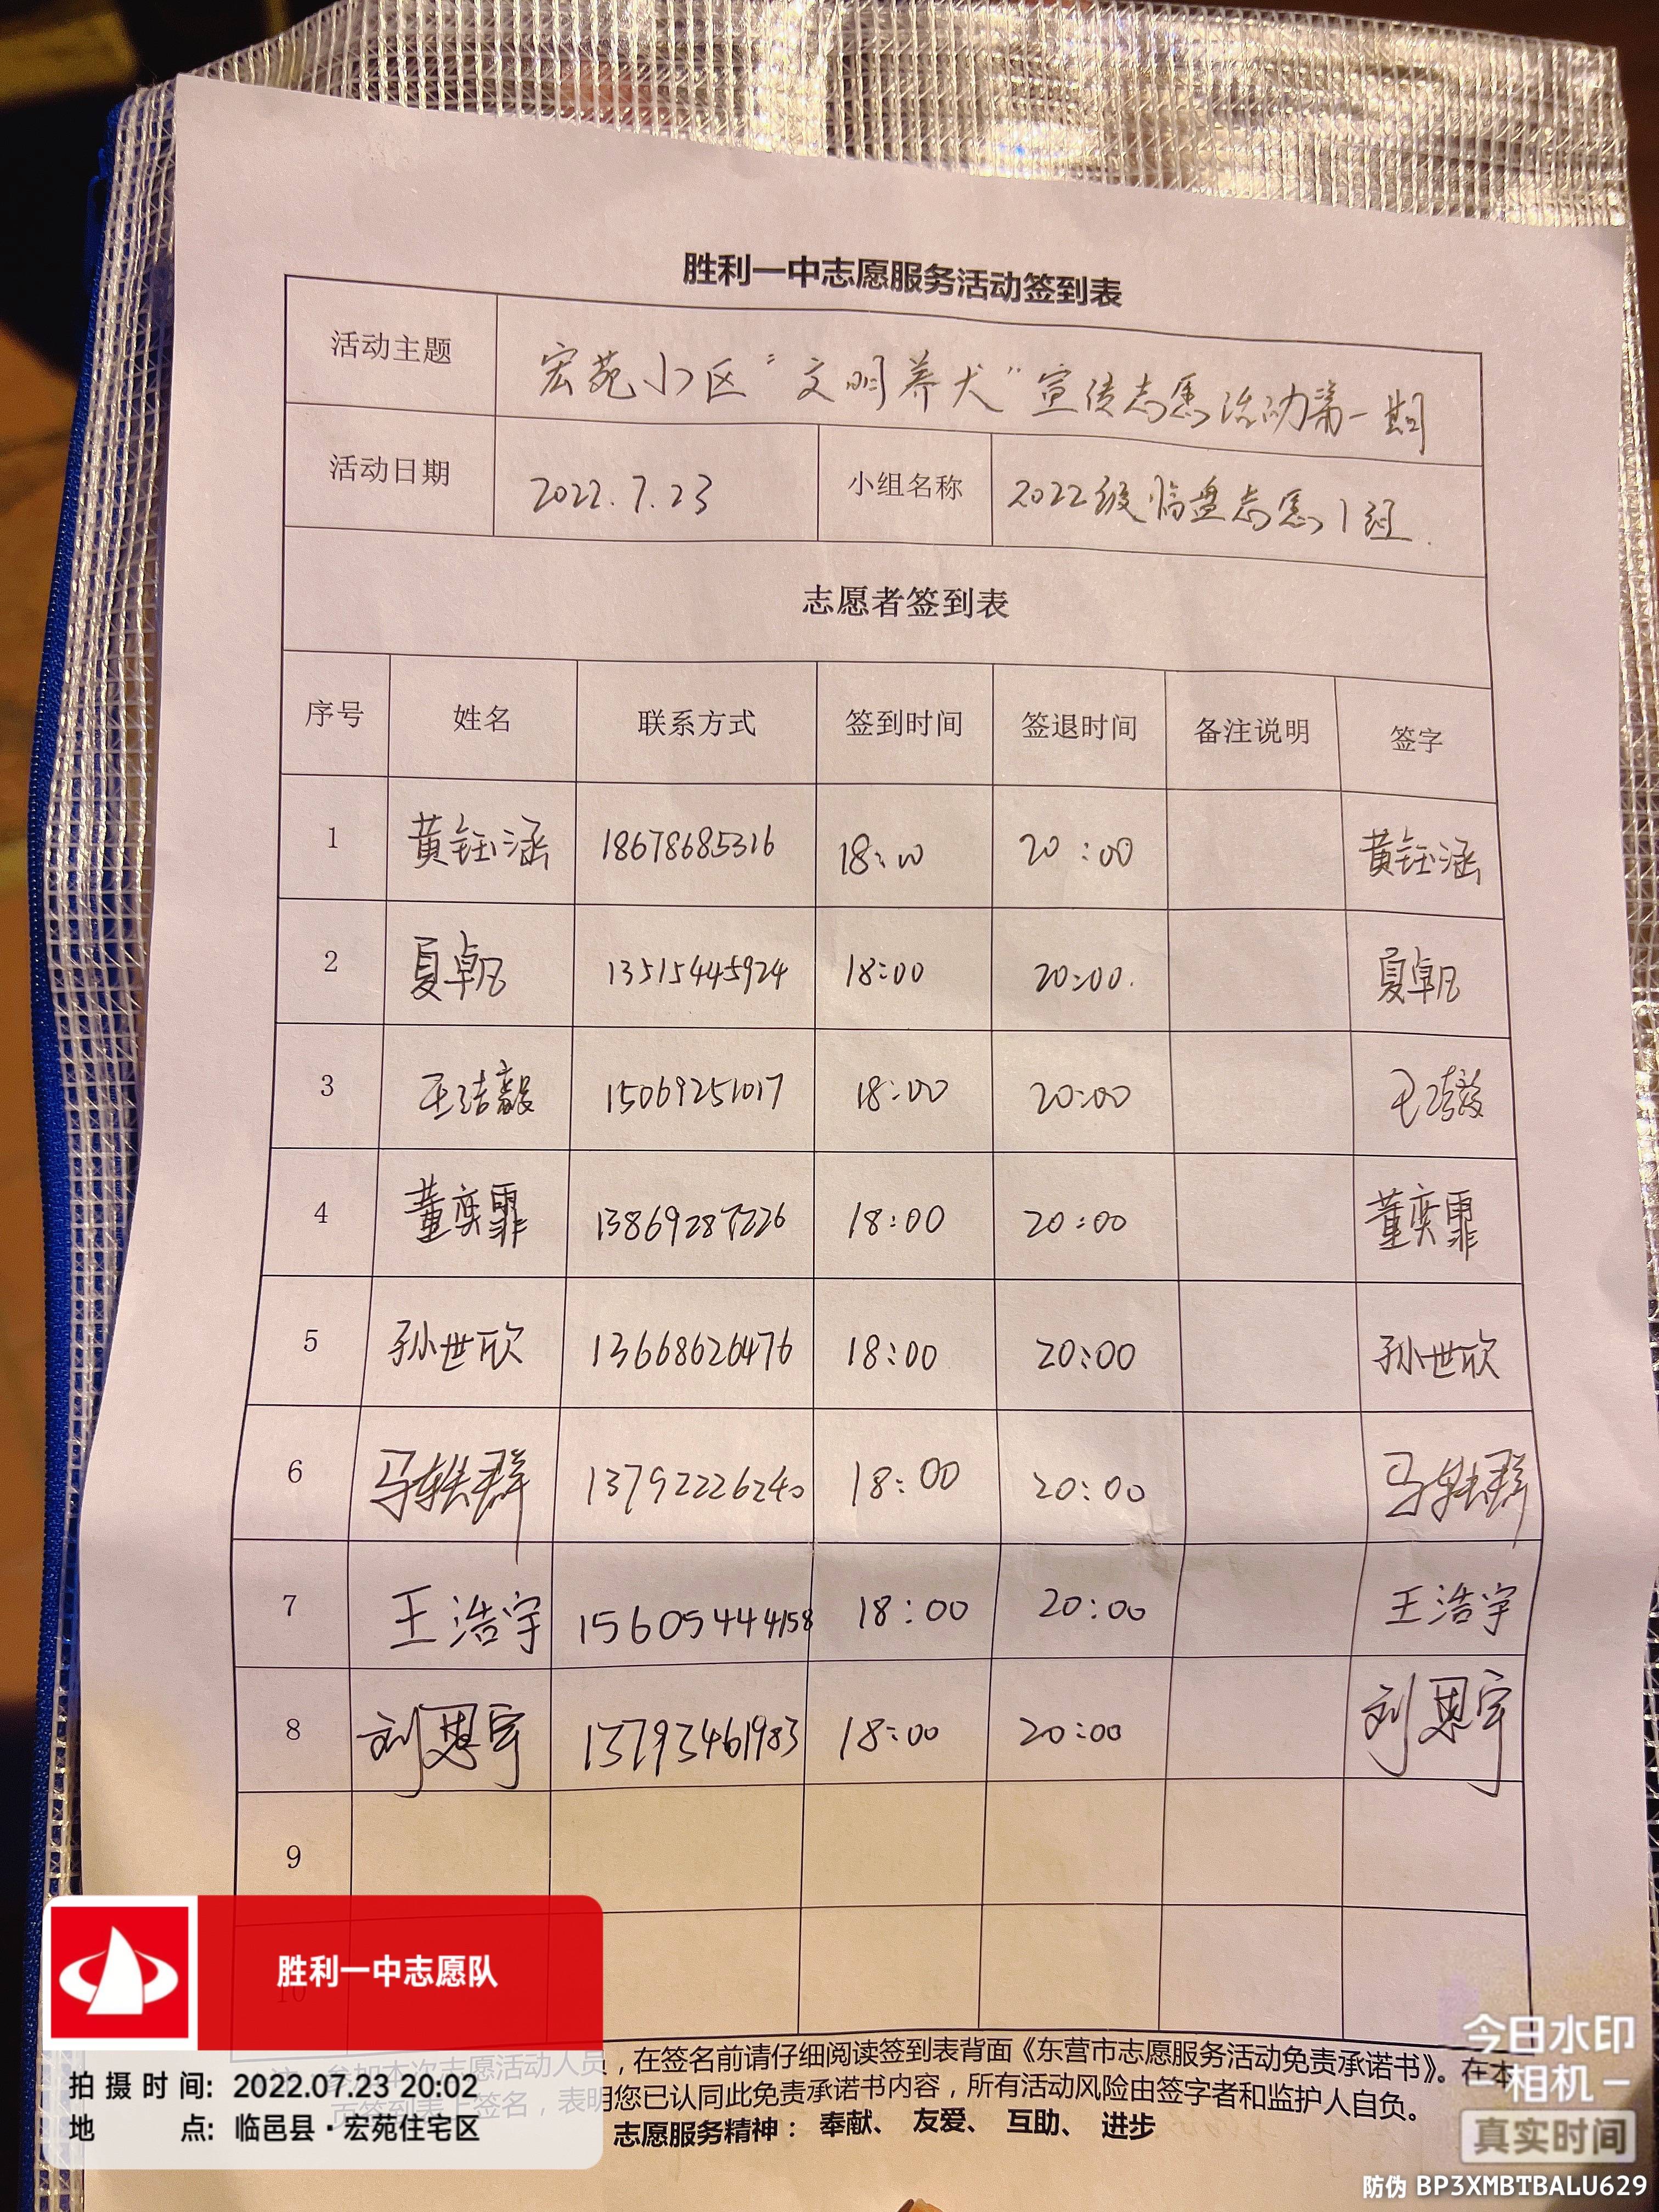 胜利一中志愿服务活动签到表
活动主题 宏苑小区“文明养犬”宣传志愿活动第一期
活动日期 2022.7.23 小组名称 2022级临盘志愿1班.
志愿者签到表
序号 姓名 联系方式 签到时间 签退时间 备注说明 签字
1 黄钰涵 18678685316 18:00 20:00 黄钰涵
2 夏卓凡 13515445924 18:00 20:00. 夏卓凡
3 王洁毅 15069251017 18:00 20:00 王洁毅
4 董奕霏 13869287226 18:00 20:00 董奕霏
5 孙世欣 13668626476 18:00 20:00 孙世欣
6 马轶群 13792226240 18:00 20:00 马轶群
7 王浩宇 15605444158 18:00 20:00 王浩宇
8 刘恩宇 13793461983 18:00 20:00 刘恩宇
9
10
注：参加本次志愿活动人员，在签名前请仔细阅读签到表背面《东营市志愿服务活动免责承诺书》。在本
页签到表上签名，表明您已认同此免责承诺书内容，所有活动风险由签字者和监护人自负。
志愿服务精神：奉献、友爱、互助、进步
胜利一中志愿队
拍摄时间: 2022.07.23 20:02
地点: 临邑县·宏苑住宅区
今日水印
-相机-
真实时间
防伪 BP3XMBTBALU629